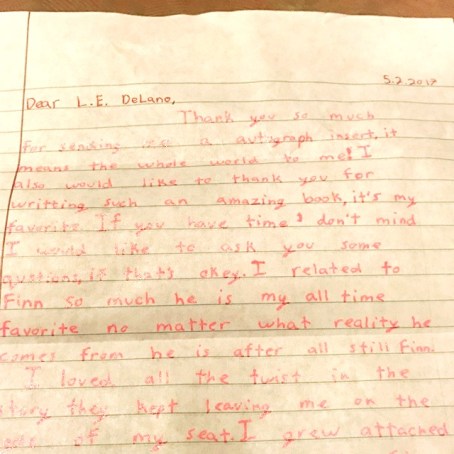 5.2.2017
Dear L.E. DeLano,
Thank you so much
for sending a autgraph insert, it
means the whole world to me! I
also would like to thank you for
writting such an amazing book, it's my
favorite. If you have time & don't mind
I would like to ask you some
qustions, if that's okey. I related to
Finn so much he is my all time
favorite no matter what reality he
comes from he is after all still Finn.
I loved all the twist in the
story they kept leaving me on the
of my seat. I grew attached